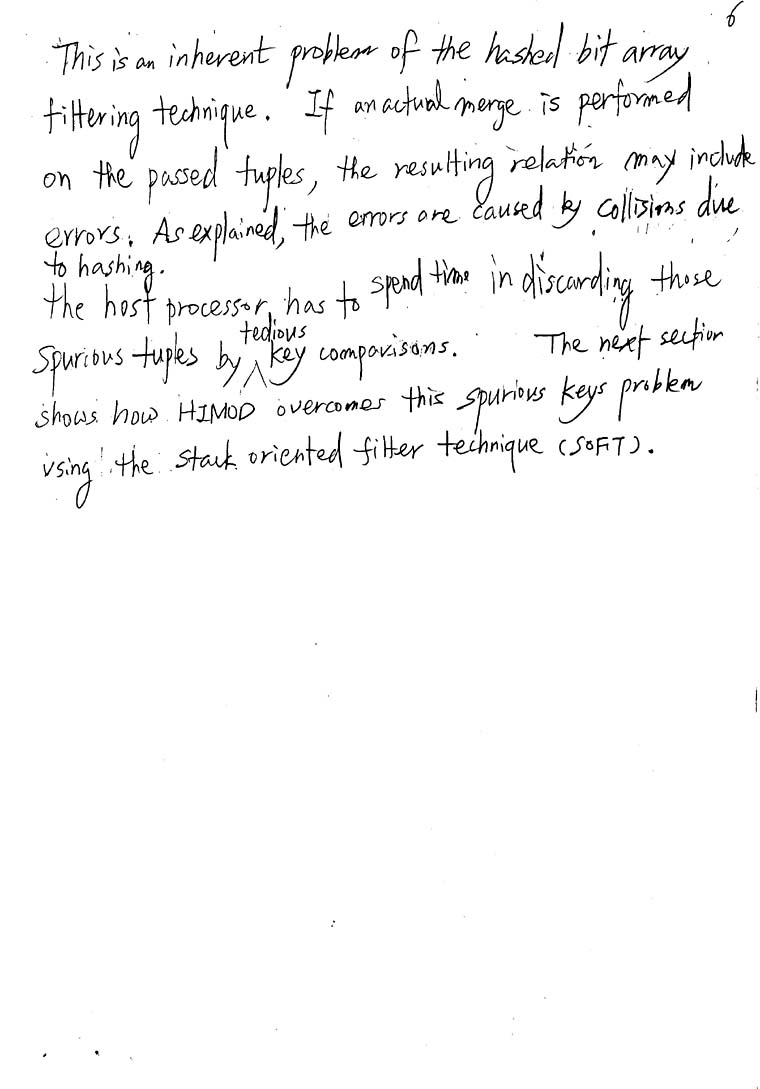 6
This is an inherent problem of the hashed bit array
filtering technique. If an actual merge is performed
on the passed tuples, the resulting relation may include
errors. As explained, the errors are caused by collisions due
to hashing.
the host processor has to spend time in discarding those
tedious
spurious tuples by key comparisons. The next section
shows how HIMOD overcomes this spurious keys problem
using the stack oriented filter technique (SOFT).